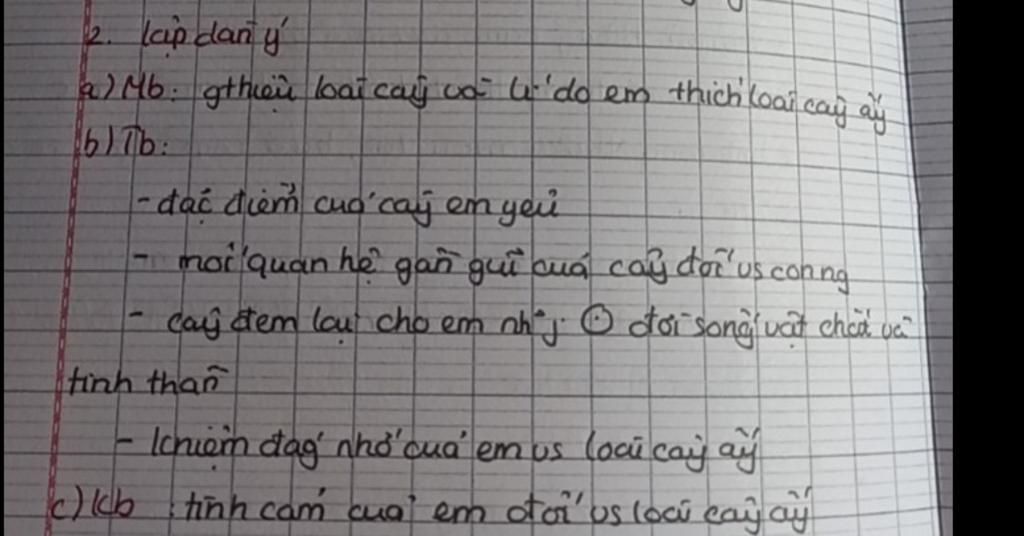 2. lập dàn ý
a) Mb: gthiệu loài cây và lí do em thích loài cây ấy
b) Tb:
- đặc điểm của cây em yêu
- mối quan hệ gần gũi của cây đối vs conng
- cây đem lại cho em nh~j: ⊙ đời sống vật chất và
tinh thần
- kỉ niệm đág nhớ của em vs loài cây ấy
c) Kb : tình cảm của em đối vs loài cây ấy